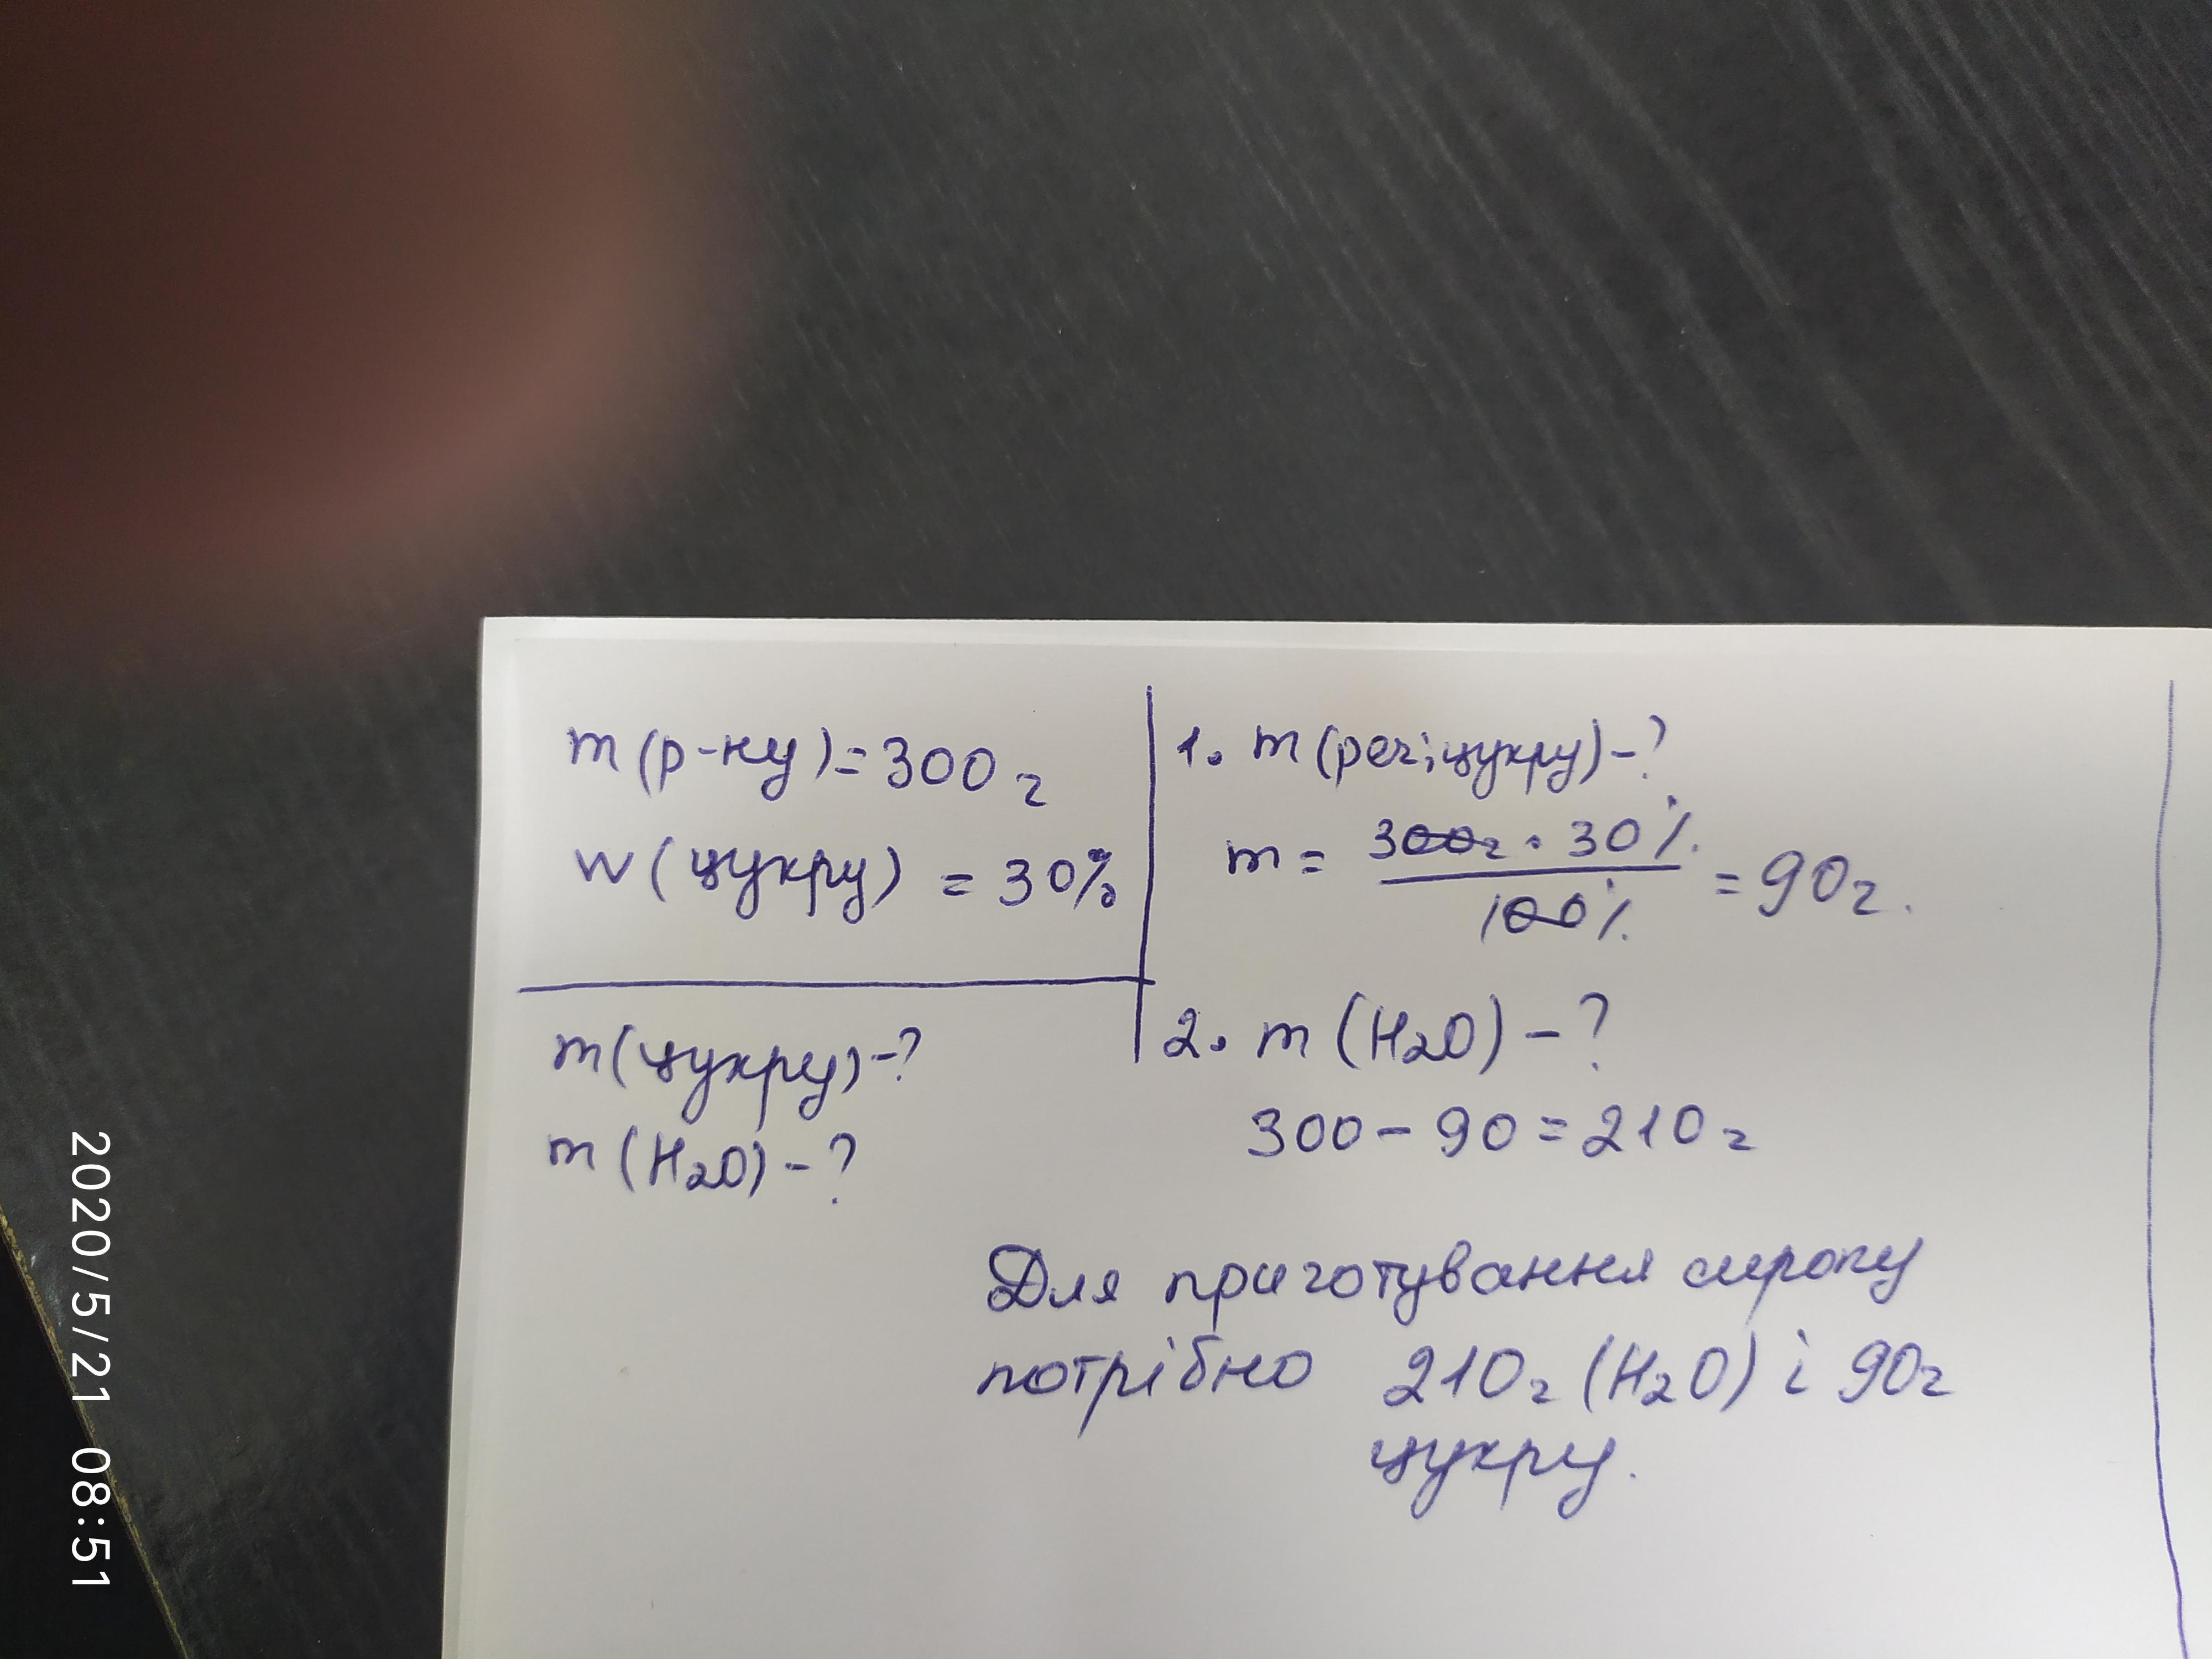 m(р-ну)=300г
w(цукру) = 30%
m(цукру)-?
m(H₂O)-?
1. m(реч;цукру)-?
m = 300г · 30% / 100% = 90г.
2. m(H₂O) - ?
300 - 90 = 210г
Для приготування сиропу
потрібно 210г (H₂O) і 90г
цукру.
2020/5/21 08:51